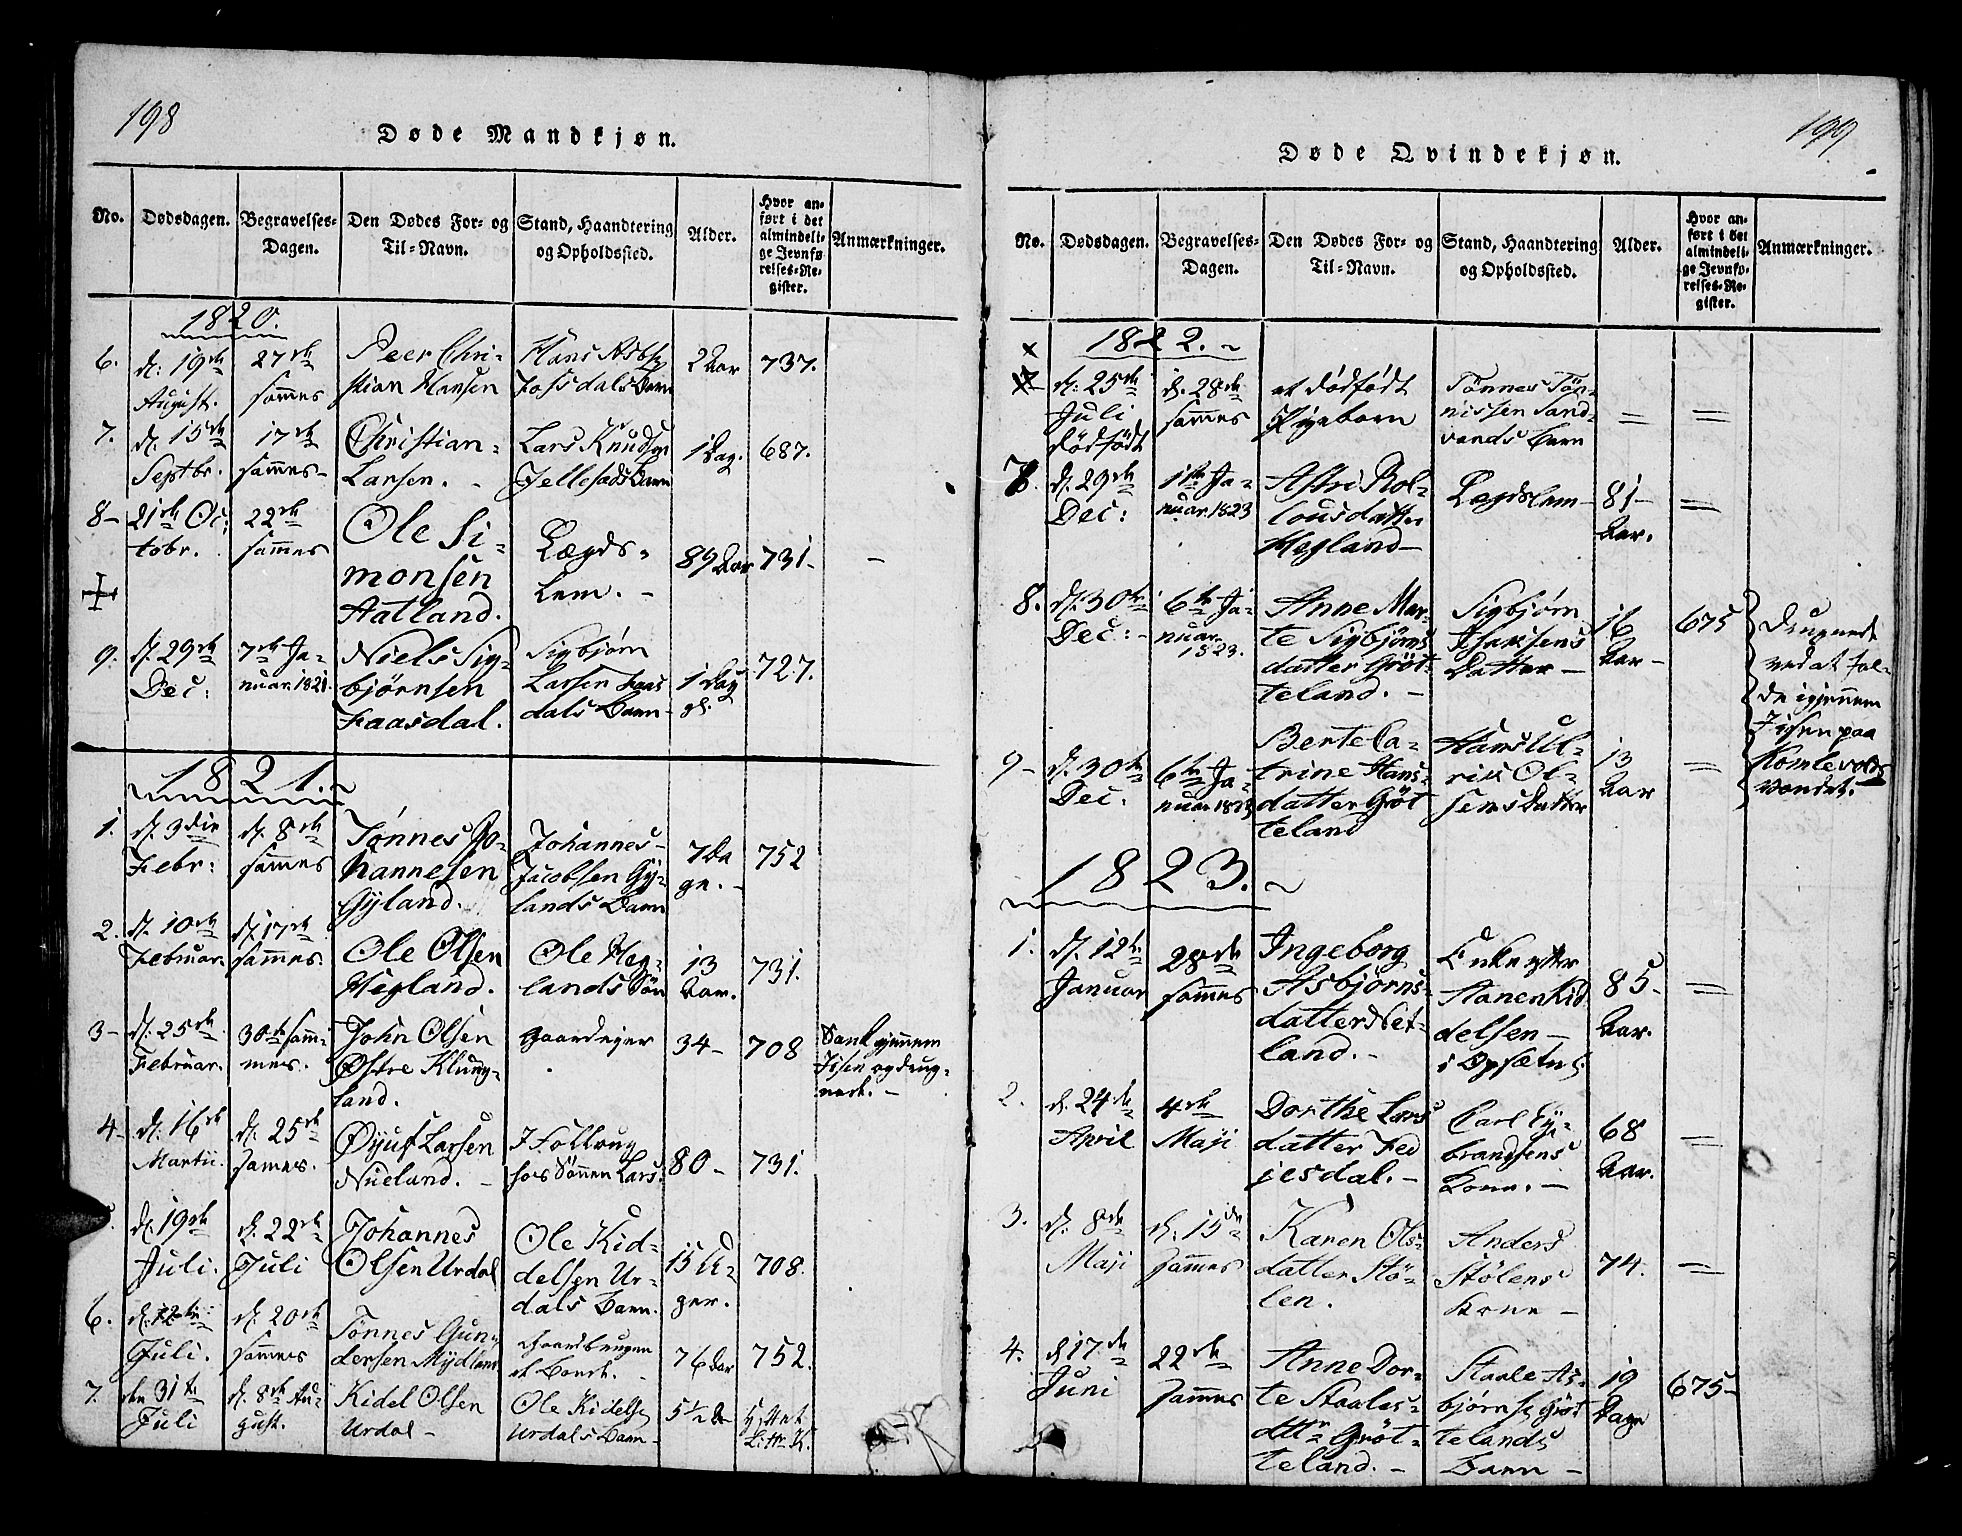 198
Døde Mandkjøn.
No.
Dødsdagen.
Begravelses-
Dagen.
Den Dødes For- og
Til-Navn.
Stand, Haandtering
og Opholdssted.
Alder.
Hvor an-
ført i det
almindeli-
ge Jevnfø-
relses-Re-
gister.
Anmærkninger.
1820.
6.
d. 19de
August.
27de
sammes
Peer Chri-
stian Hansen
Hans
Barn
2 Aar
737.
7.
d. 15de
Septbr.
17de
sammes
Christian
Larsen.
Lars Knudsen
Jellesads Barn
1 Dag.
687.
8-
21de Oc-
tobr.
22de
sammes
Ole Si-
monsen
Aatland.
Lægds-
Lem. -
89 Aar
731-
9.
d. 29de
Dec:
7de Ja-
nuar 1821.
Niels Sig-
bjørnsen
Faasdal.
Sigbjørn
Larsen Faas
dals Barn-
1 Dag
gl.
727.
1821.
1.
d. 3die
Febr:
d. 8de
sammes
Tønnes Jo-
hannesen
Gyland.
Johannes
Jacobsen Gy-
lands Barn
7 Da
ge. -
752
2.
d. 10de
Februar.
d. 17de
sammes.
Ole Olsen
Hegland.
Ole Heg-
lands Søn
13
Aar.
731.
3-
d. 25de
Februar.
30te sam-
mes.
John Olsen
Østre Klung-
land.
Gaardejer
34-
708
Sank gjennem
Iisen og drug-
nede. -
4-
d. 16de
Martii.
d. 25de
sammes.
Øyuf Larsen
Nueland. -
I Follaug
hos Sønnen Lars.
80-
731.
d. 19de
Juli.
d. 22de
Juli
Johannes
Olsen Urdal
Ole Kid-
delsen Ur-
dals Barn.
15 U-
ger.
708.
6.
d. 12te
Juli.
d. 20de
sammes
Tønnes Gun-
dersen Mydland
76 Aar
752.
7.
den 31te
Juli
d. 8de Au-
gust.
Kidel Olsen
Urdal -
Ole Kidelsen
Urdals Barn-
5 1/2
Litr. K.
199
Døde Qvindekjøn.
No.
Dødsdagen.
Begravelses-
Dagen.
Den Dødes For- og
Til-Navn.
Stand, Haandtering
og Opholdssted.
Alder.
Hvor an-
ført i det
almindeli-
ge Jevnfø-
relses-Re-
gister.
Anmærkninger.
1822.
d. 25de
Juli
dødfødt
d. 28de
sammes
et dødfødt
Pigebarn
Tønnes Tøn-
nissen Sand-
vands Barn
7.
d. 29de
Dec:
1ste Ja-
nuar 1823
Astri Rol-
lousdatter
Hegland-
Lægdslem-
81-
Aar.
8.
d. 30te
Dec: -
6te Ja-
nuar
1823.
Anne Mar-
te Sigbjørns
datter Grøt-
teland. -
Sigbjørn
Datter -
16
Aar-
675
Drugnede
ved at fal-
de igjennem
Iisen paa
Komlevolds
Vandet.
9-
d. 30te
Dec.
6te Ja-
nuar 1823
Berte Ca-
trine Hans-
datter Grøt
teland
Hans Ul-
rik Ol-
sens Datter
13
Aar
1823.
1.
d. 12te
Januar
28de
sammes
Ingeborg
Asbjørns-
datter Net-
land. -
Enke efter
Kid
delsen -
i Opsætnes
85-
Aar.
2.
d. 24de
April
4de
Maji
Dorthe Lars
datter Fed
jesdal. -
Carl Ey-
brandsens
Kone. -
68
Aar.
3.
d. 8de
Maji
d. 15de
sammes
Karen Ols-
datter Stø-
len.
Anders
Stølens
Kone -
74.
4.
d 17de
Juni
22de
sammes
Anne Dor-
te Staales-
dttr Grøt-
teland. -
Staale As-
bjørns. Grøt
telands
Barn -
19
Dage
675-